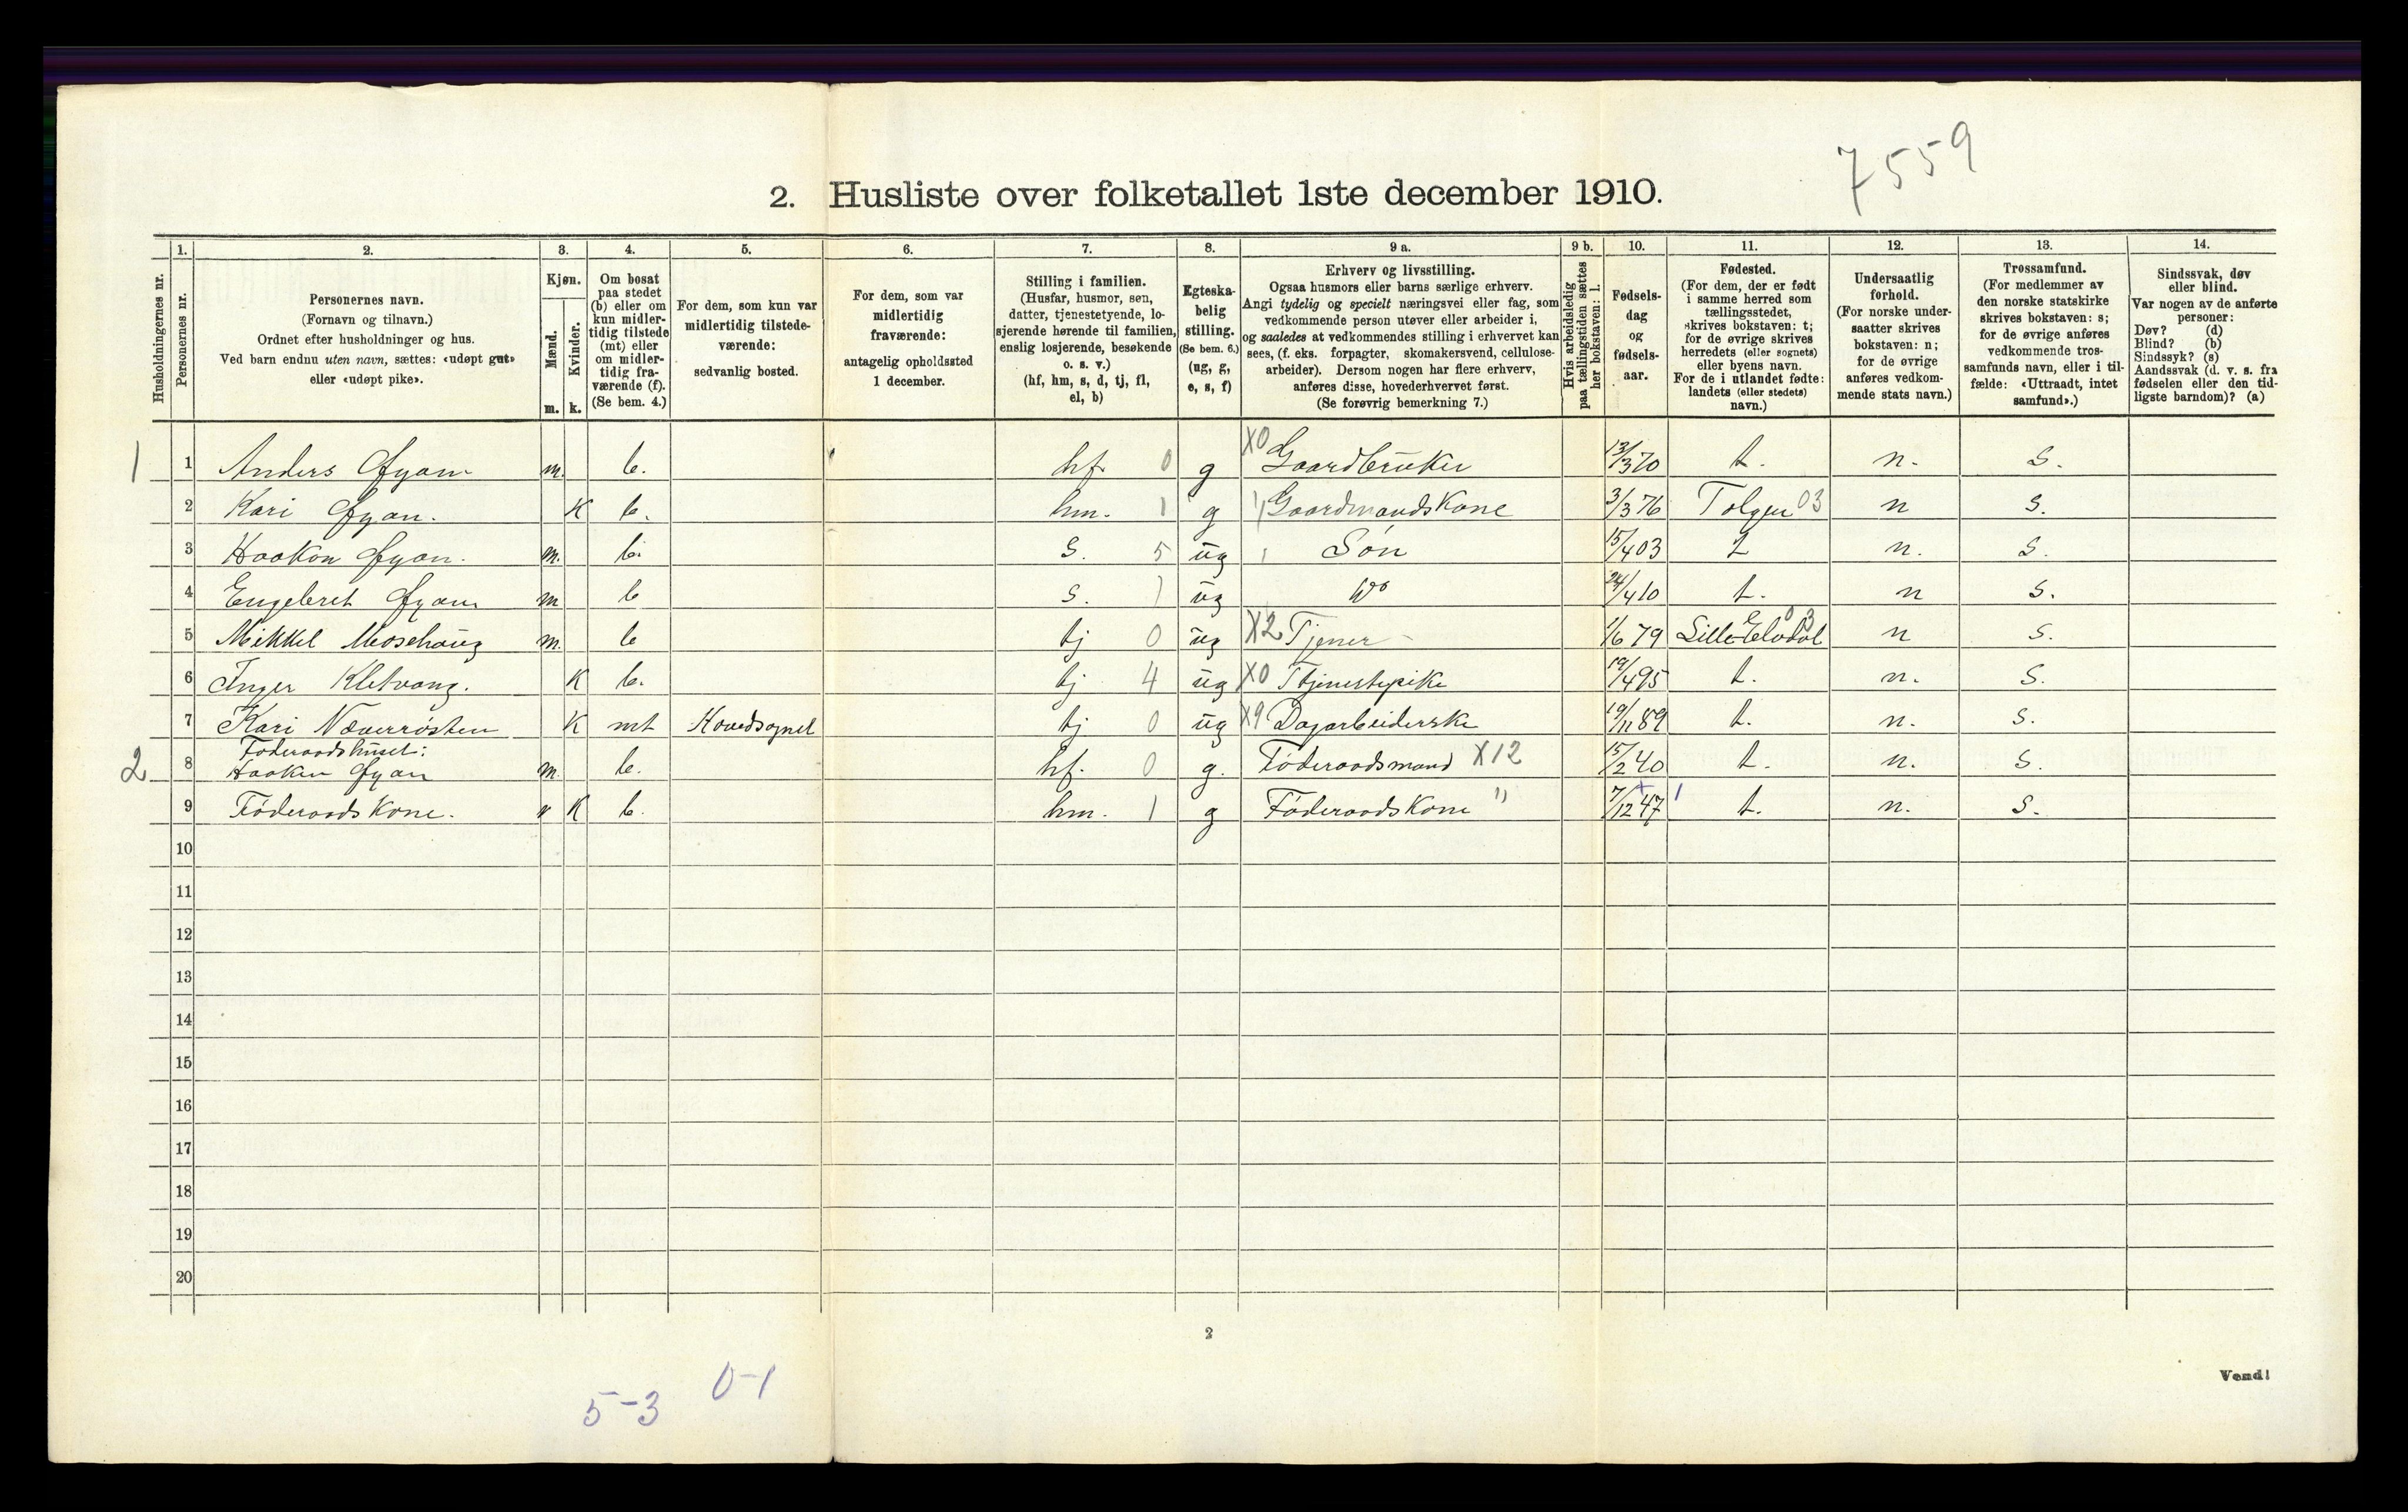 7559
2. Husliste over folketallet 1ste december 1910.
Husholdningernes nr.
1. Personernes nr.
2. Personernes navn. (Fornavn og tilnavn.) Ordnet efter husholdninger og hus. Ved barn endnu uten navn, sættes: «udøpt gut» eller «udøpt pike».
3. Kjøn. Mænd. m. Kvinder. k.
4. Om bosat paa stedet (b) eller om kun midler-tidig tilstede (mt) eller om midler-tidig fra-værende (f). (Se bem. 4.)
5. For dem, som kun var midlertidig tilstede-værende: sedvanlig bosted.
6. For dem, som var midlertidig fraværende: antagelig opholdssted 1 december.
7. Stilling i familien. (Husfar, husmor, søn, datter, tjenestetyende, lo-sjerende hørende til familien, enslig losjerende, besøkende o. s. v.) (hf, hm, s, d, tj, fl, el, b)
8. Egteska-belig stilling. (Se bem. 6.) (ug, g, e, s, f)
9 a. Erhverv og livsstilling. Ogsaa husmors eller barns særlige erhverv. Angi tydelig og specielt næringsvei eller fag, som vedkommende person utøver eller arbeider i, og saaledes at vedkommendes stilling i erhvervet kan sees, (f. eks. forpagter, skomakersvend, cellulose-arbeider). Dersom nogen har flere erhverv, anføres disse, hovederhvervet først. (Se forøvrig bemerkning 7.)
9 b. Hvis arbeidsledig paa tællingstiden sættes her bokstaven: l.
10. Fødsels-dag og fødsels-aar.
11. Fødested. (For dem, der er født i samme herred som tællingsstedet, skrives bokstaven: t; for de øvrige skrives herredets (eller sognets) eller byens navn. For de i utlandet fødte: landets (eller stedets) navn.)
12. Undersaatlig forhold. (For norske under-saatter skrives bokstaven: n; for de øvrige anføres vedkom-mende stats navn.)
13. Trossamfund. (For medlemmer av den norske statskirke skrives bokstaven: s; for de øvrige anføres vedkommende tros-samfunds navn, eller i til-fælde: «Uttraadt, intet samfund».)
14. Sindssvak, døv eller blind. Var nogen av de anførte personer: Døv? (d) Blind? (b) Sindssyk? (s) Aandssvak (d. v. s. fra fødselen eller den tid-ligste barndom)? (a)
1 1 Anders m. b. hf. 0 g X0 Gaardbruker 13/3 70 t. n. s.
2 Kari K b. hm. 1 g Gaardmandskone 3/3 76 Tolgen 03 n s.
3 Haakon m. b. s. 5 ug Søn 15/4 03 t n. s.
4 Engebret m b s. 1 ug Do 24/4 10 t. n s.
5 Mikkel Mosehaug m. b tj 0 ug X2 Tjener 1/6 79 Lille Elvdal 03 n s.
6 Inger Kletvang. K b. tj 4 ug X0 Ttjenestepike 19/4 95 t. n. s.
7 Kari Næverrøsten K mt Hovedsognet tj 0 ug X9 Dagarbeiderske 19/11 89 t. n. s.
Føderaadshuset:
2 8 Haaken m. b. hf. 0 g. Føderaadsmand X12 15/2 40 t. n. s.
9 Føderaadskone. K b. hm. 1 g Føderaadskone " 7/12 47 t. n. s.
10
11
12
13
14
15
16
17
18
19
20
2
Vend!
0-1
5-3